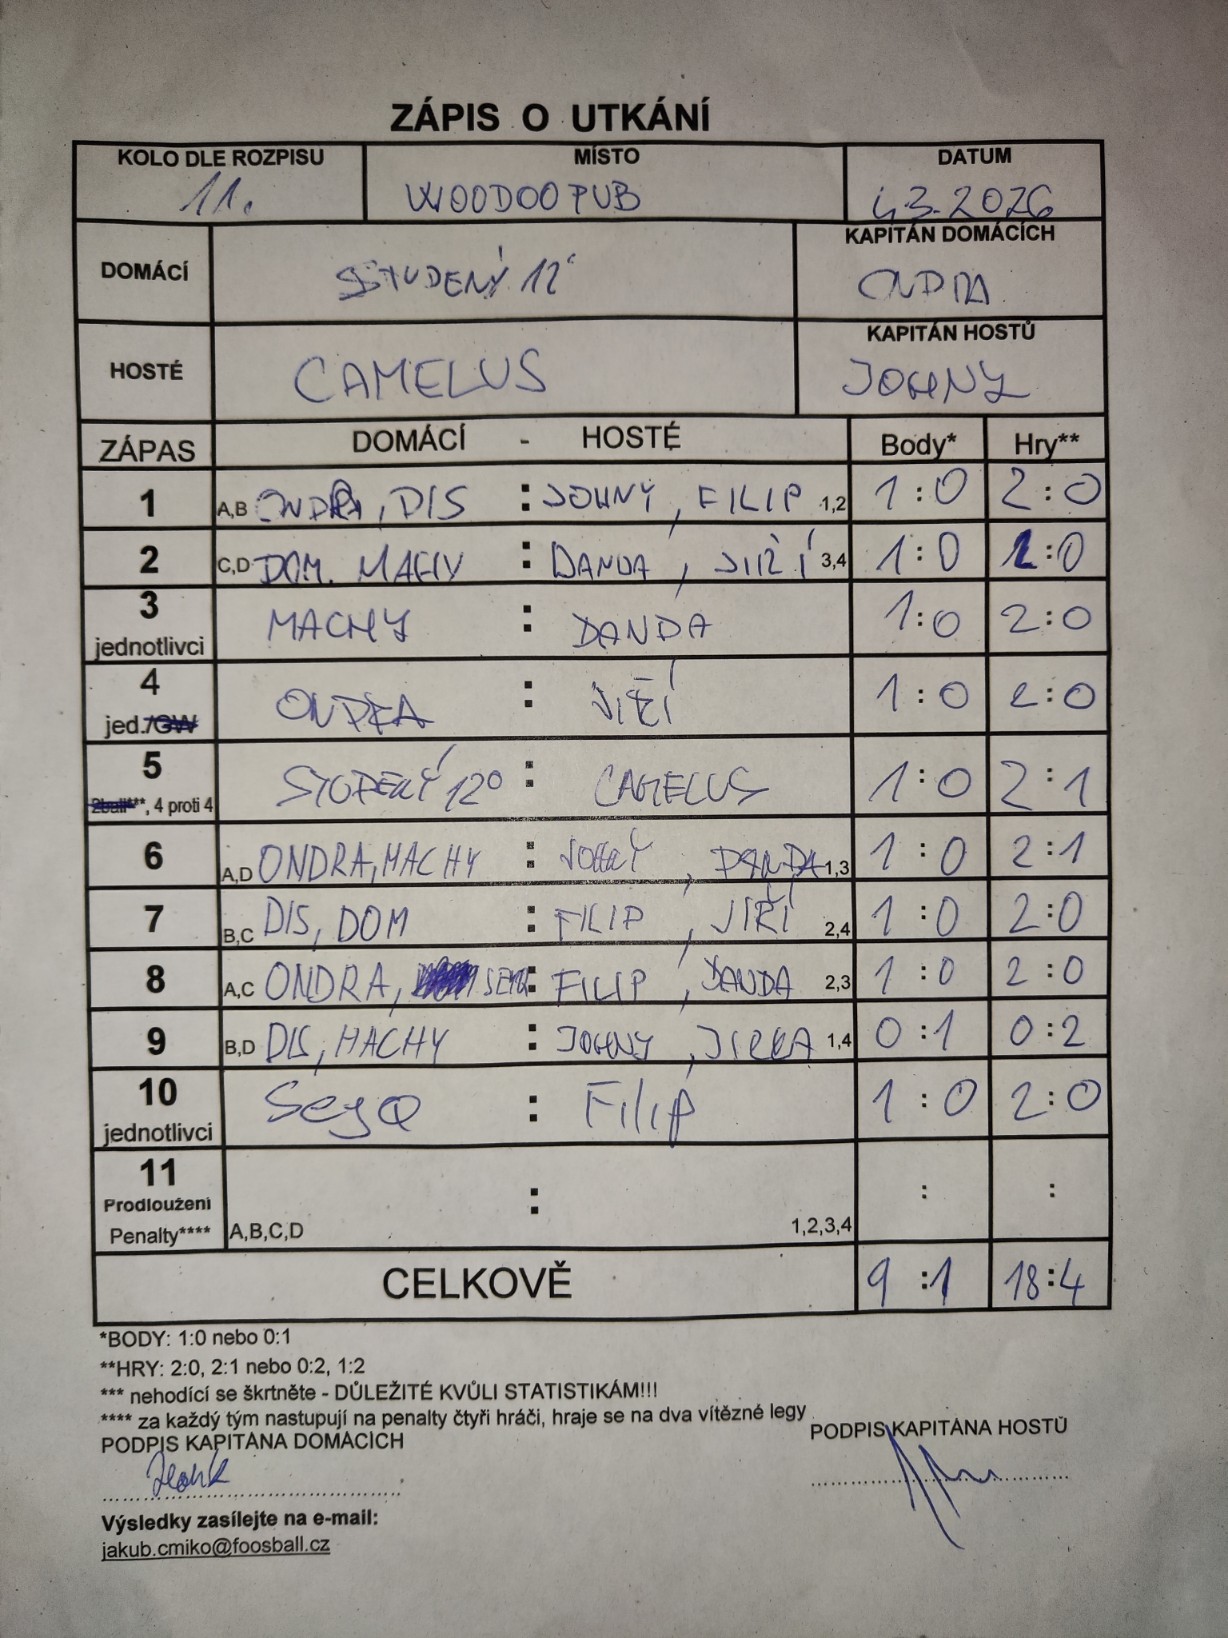 ZÁPIS O UTKÁNÍ
KOLO DLE ROZPISU MÍSTO DATUM
11. WOODOO PUB 4.3.2026
DOMÁCÍ STUDENÝ 12° KAPITÁN DOMÁCÍCH
ONDRA
HOSTÉ CAMELUS KAPITÁN HOSTŮ
JOHNY
ZÁPAS DOMÁCÍ - HOSTÉ Body* Hry**
1 A,B ONDRA, DIS : JOHNY, FILIP 1,2 1:0 2:0
2 C,D DOM. MACHY : DANDA, JIŘÍ 3,4 1:0 2:0
3 jednotlivci MACHY : DANDA 1:0 2:0
4 jed./GW ONDRA : JIŘÍ 1:0 2:0
5 2ball***, 4 proti 4 STUDENÝ 12° : CAMELUS 1:0 2:1
6 A,D ONDRA, MACHY : JOHNY, DANDA 1,3 1:0 2:1
7 B,C DIS, DOM : FILIP, JIŘÍ 2,4 1:0 2:0
8 A,C ONDRA, SEJQ : FILIP, DANDA 2,3 1:0 2:0
9 B,D DIS, MACHY : JOHNY, JIRKA 1,4 0:1 0:2
10 jednotlivci SejQ : Filip 1:0 2:0
11
Prodloužení
Penalty**** A,B,C,D : 1,2,3,4 : :
CELKOVĚ 9:1 18:4
*BODY: 1:0 nebo 0:1
**HRY: 2:0, 2:1 nebo 0:2, 1:2
*** nehodící se škrtněte - DŮLEŽITÉ KVŮLI STATISTIKÁM!!!
**** za každý tým nastupují na penalty čtyři hráči, hraje se na dva vítězné legy
PODPIS KAPITÁNA DOMÁCÍCH PODPIS KAPITÁNA HOSTŮ
Výsledky zasílejte na e-mail:
jakub.cmiko@foosball.cz